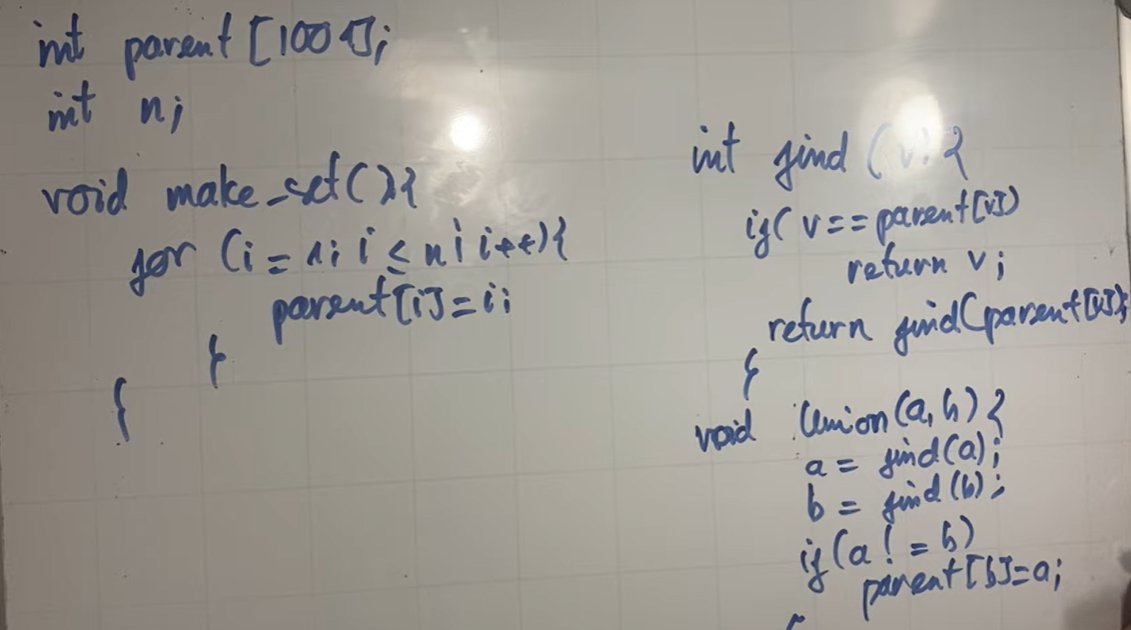 int parent[1001];
int n;
void make_set(){
for (i = 1; i ≤ n; i++){
parent[i]=i;
}
}
int find (v) {
if( v==parent[v])
return v;
return find(parent[v]);
}
void Union(a,b) {
a = find(a);
b = find(b);
if(a != b)
parent[b]=a;